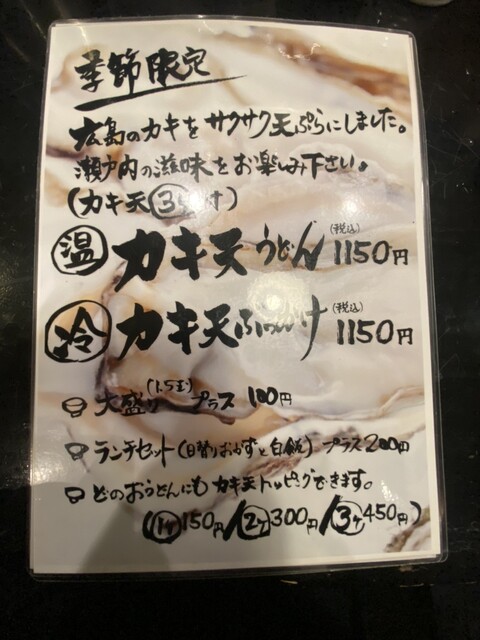 季節限定
広島のカキをサクサク天ぷらにしました。
瀬戸内の滋味をお楽しみ下さい。
(カキ天3ケ付)
温 カキ天うどん (税込) 1150円
冷 カキ天ぶっかけ (税込) 1150円
大盛り(1.5玉) プラス 100円
ランチセット(日替りおかずと白飯) プラス200円
どのおうどんにもカキ天トッピングできます。
(1ケ150円/2ケ300円/3ケ450円)